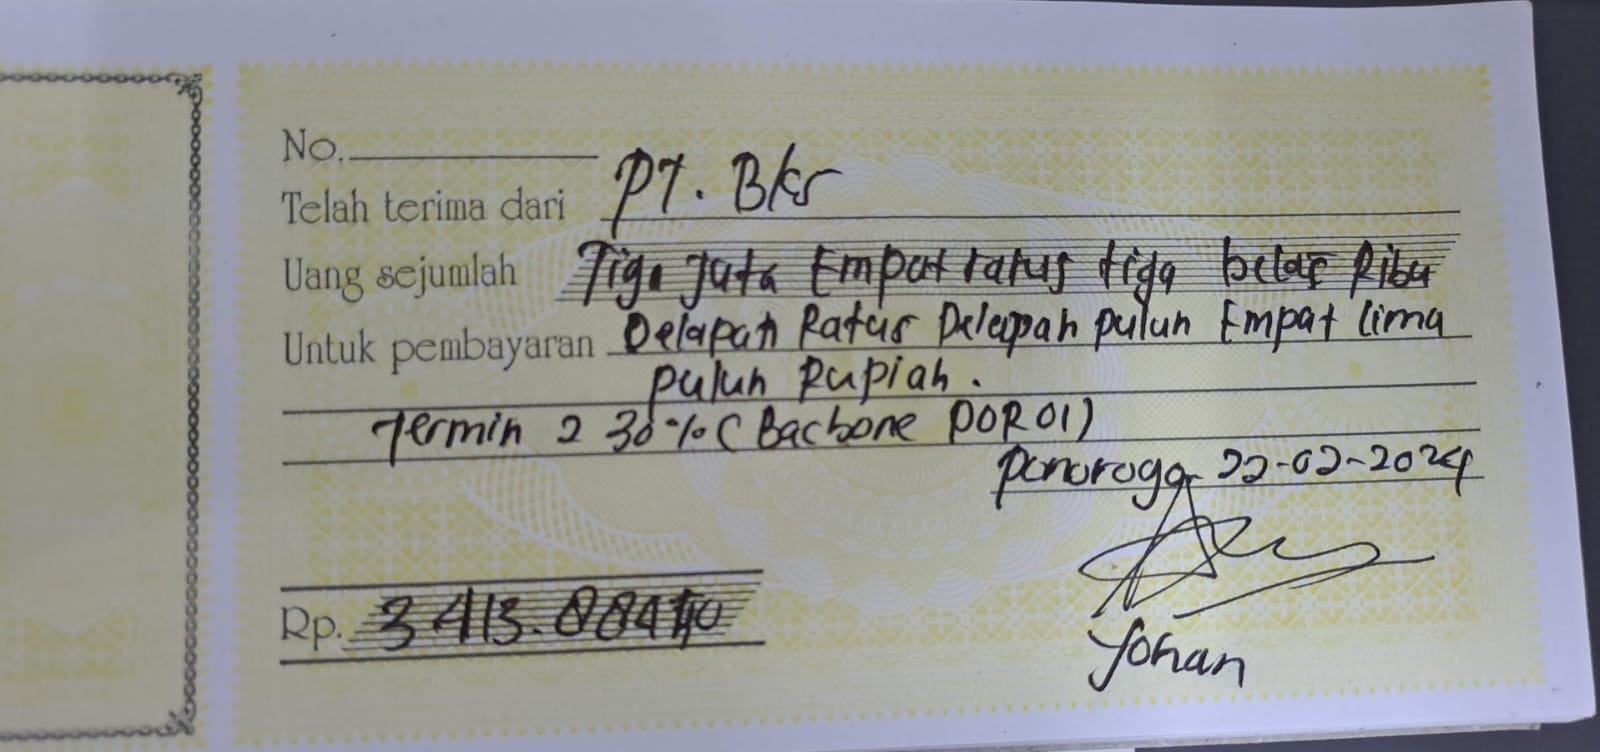 No.
Telah terima dari PT. Bks
Uang sejumlah Tiga Juta Empat ratus tiga belas Ribu
Untuk pembayaran Delapan Ratus Delapan puluh Empat lima
puluh Rupiah.
Termin 2 30% (Bacbone POR01)
Ponorogo 22-02-2024
Rp. 3 413.884
Yohan